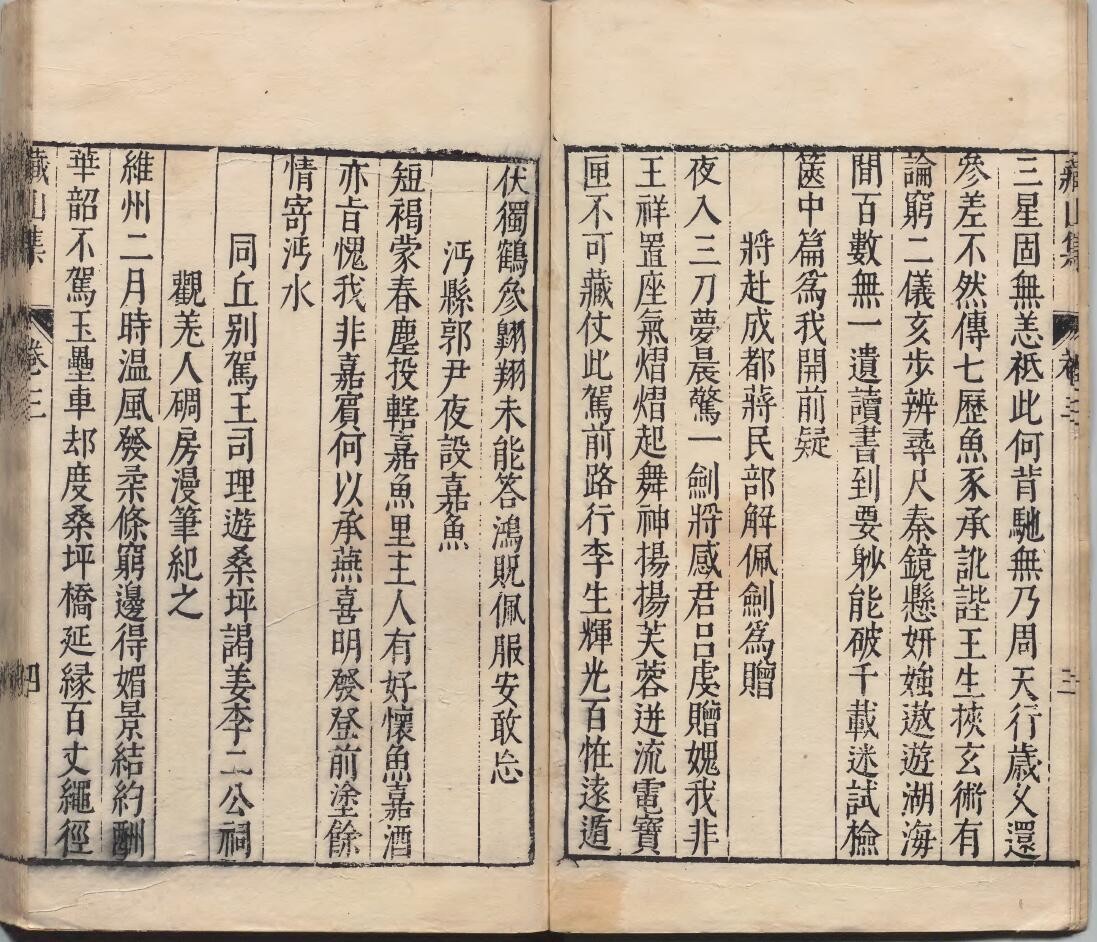 三星固無恙祗此何背馳無乃周天行歳乆還
參差不然傳七歷魚豕承訛諩王生挾玄術有
論窮二儀亥步辨尋尺秦鏡懸妍媸遨遊湖海
間百數無一遺讀書到要眇能破千載迷試檢
篋中篇爲我開前疑
將赴成都蔣民部解佩劍爲贈
夜入三刀夢晨驚一劍將感君吕虔贈媿我非
王祥置座氣熠熠起舞神揚揚芙蓉迸流電寶
匣不可藏仗此駕前路行李生輝光百恠遠遁
伏獨鶴參翺翔未能答鴻貺佩服安敢忘
沔縣郭尹夜設嘉魚
短褐蒙春塵投轄嘉魚里主人有好懷魚嘉酒
亦㫖愧我非嘉賓何以承燕喜明發登前塗餘
情寄沔水
同丘别駕王司理遊桑坪謁姜李二公祠
觀羌人碉房漫筆紀之
維州二月時温風發柔條窮邊得媚景結約酬
華韶不駕玉壘車却度桑坪橋延縁百丈繩徑
藏山集 卷三 四